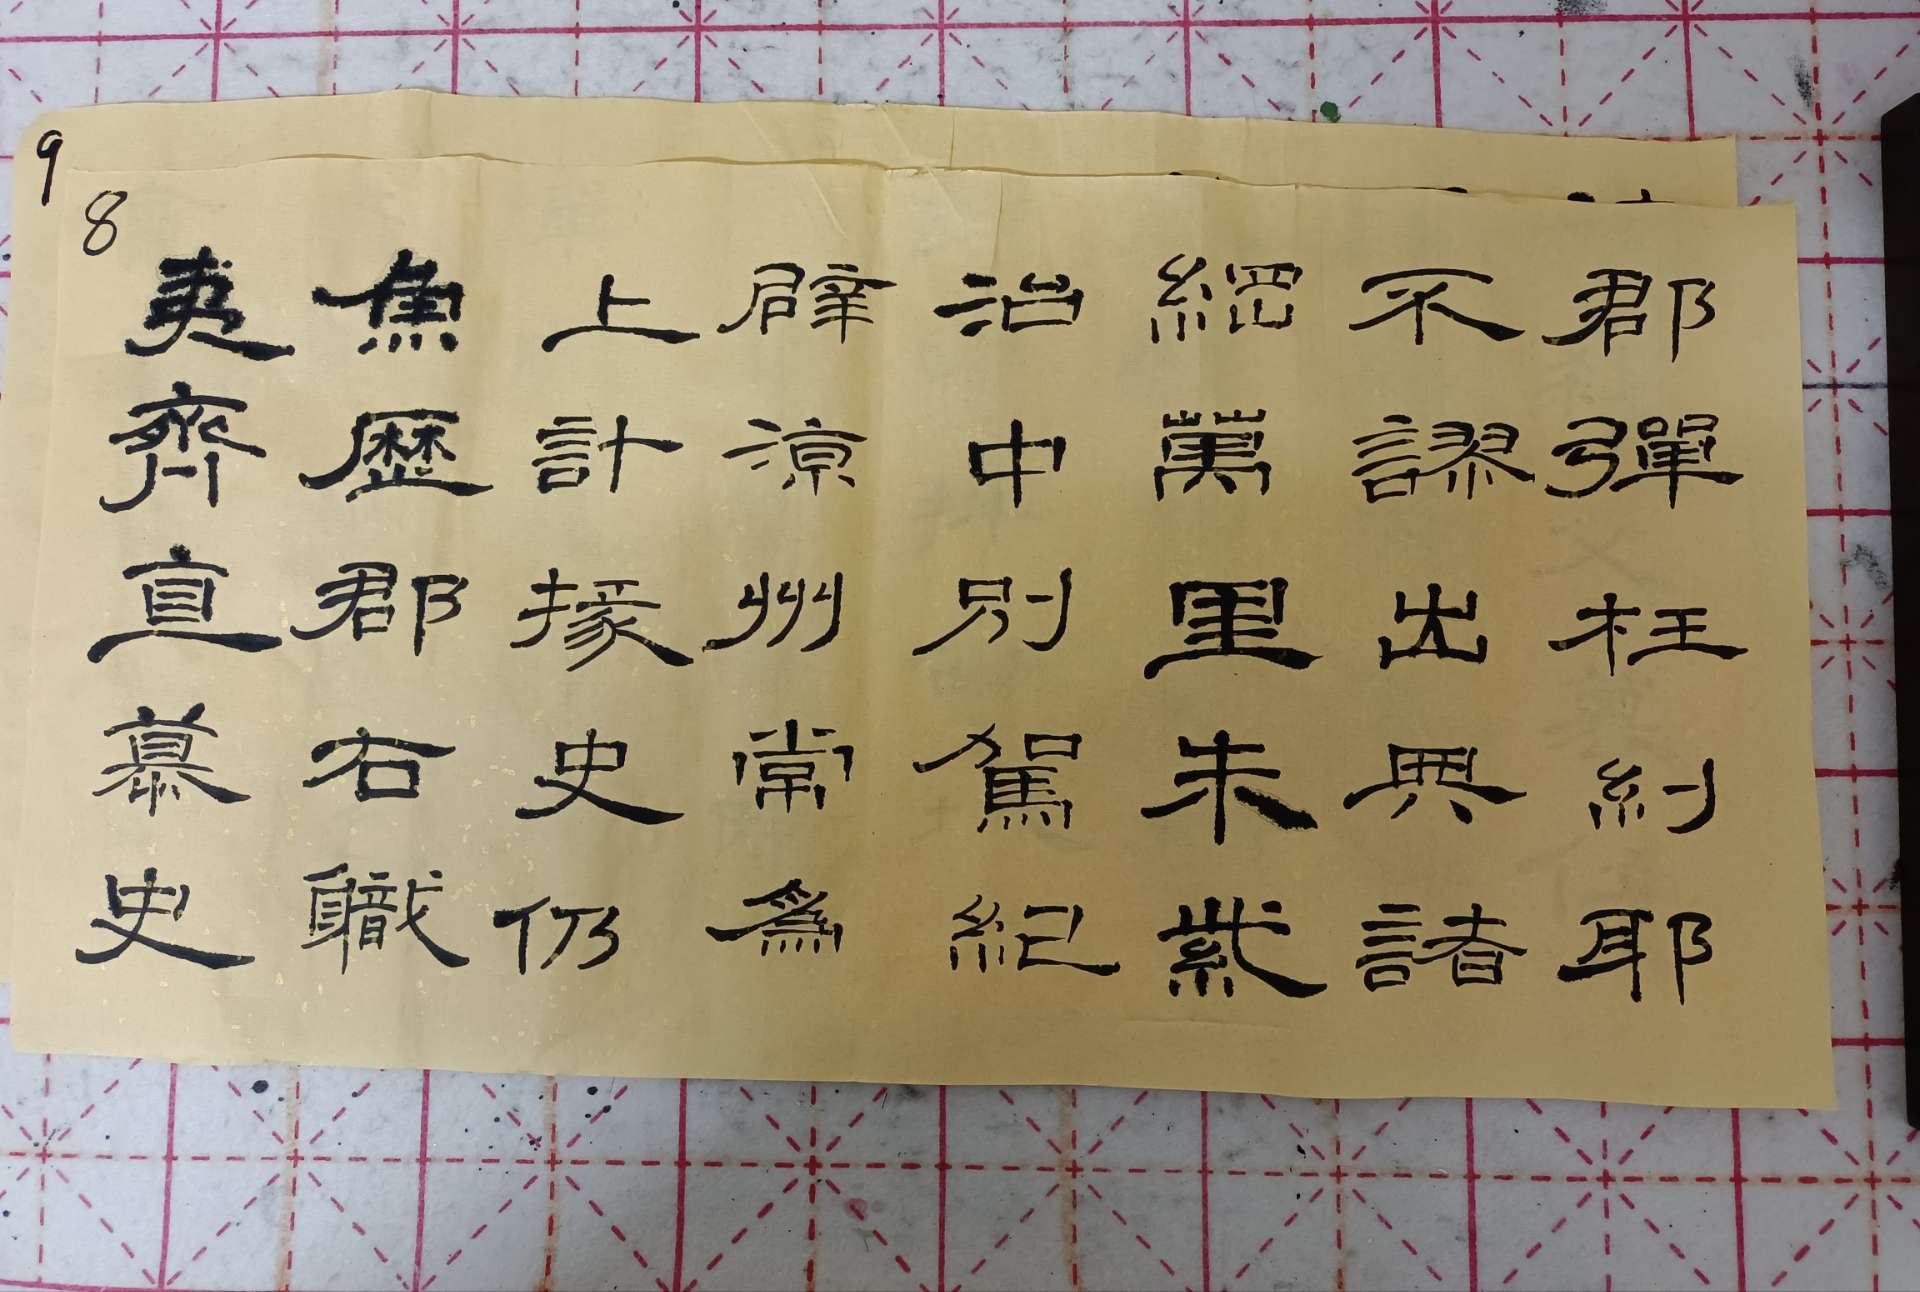 9
8
夷齊直慕史
魚歷郡右職
上計掾史仍
辟涼州常爲
治中別駕紀
綱萬里朱紫
不謬出典諸
郡彈枉糾耶